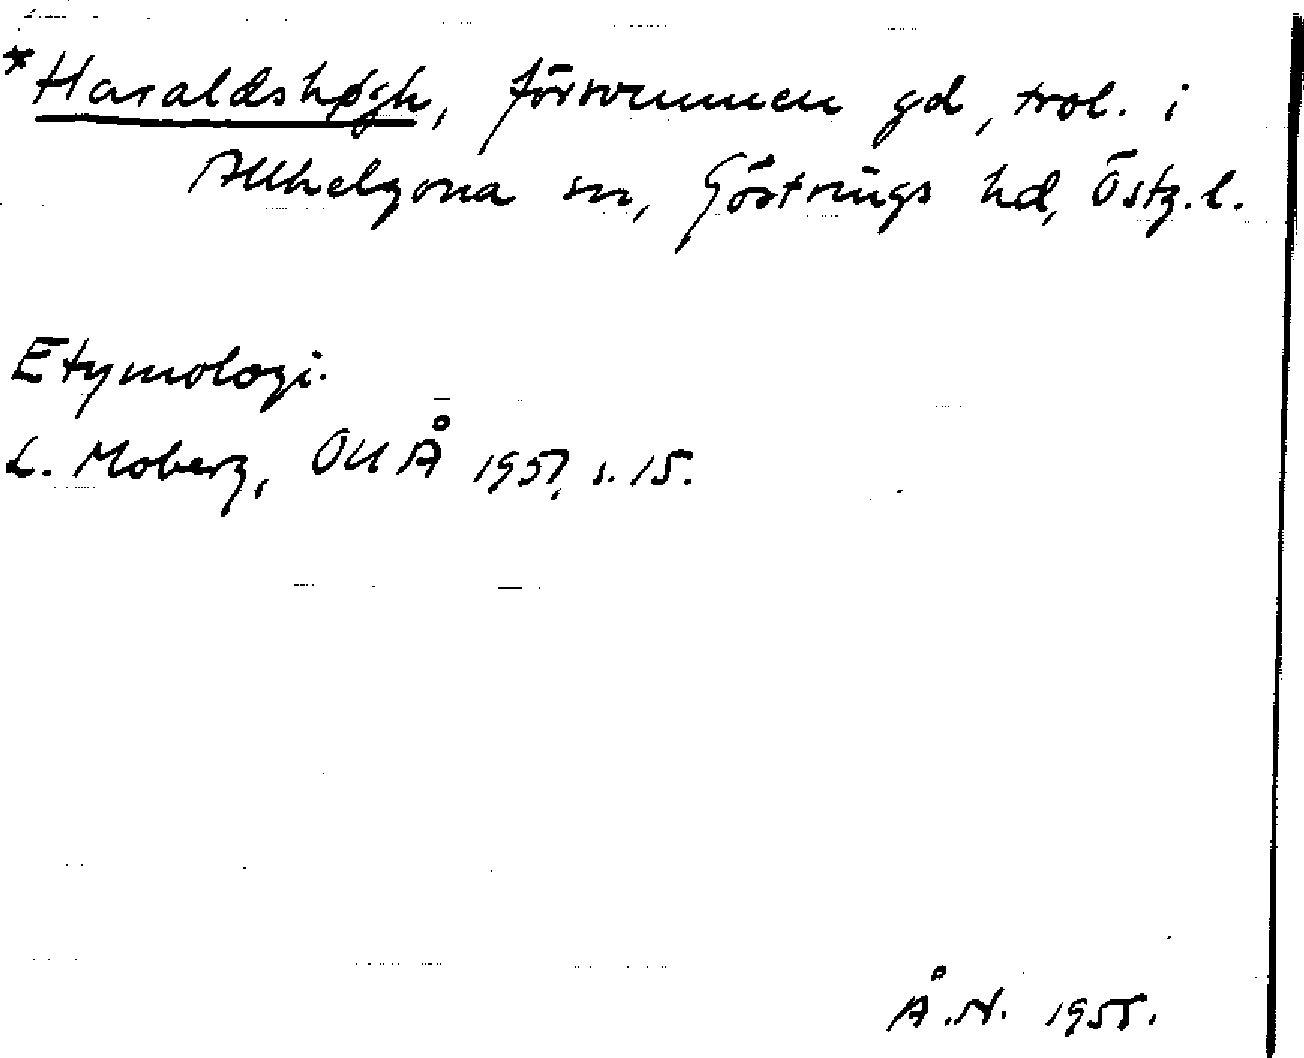 *Haraldshøgh, försvunnen gd, trol. i
Allhelgona sn, Göstrings hd, Östg.l.
Etymologi.
L. Moberg, OUÅ 1951, s. 15.
Å.N. 1955.